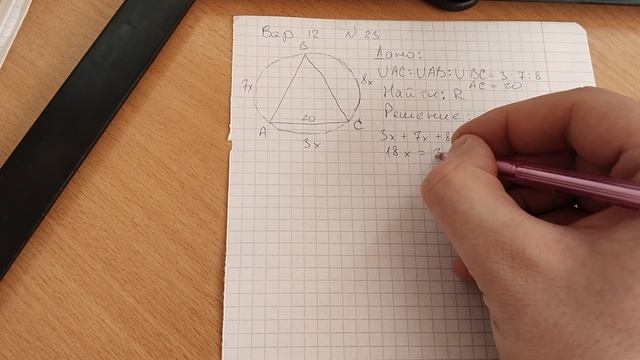 Вар 12 N 23
Дано:
∪AC:∪AB:∪BC = 3:7:8
AC = 20
Найти: R
Решение:
3x + 7x + 8
18x = 3
B
7x
8x
20
A
C
3x